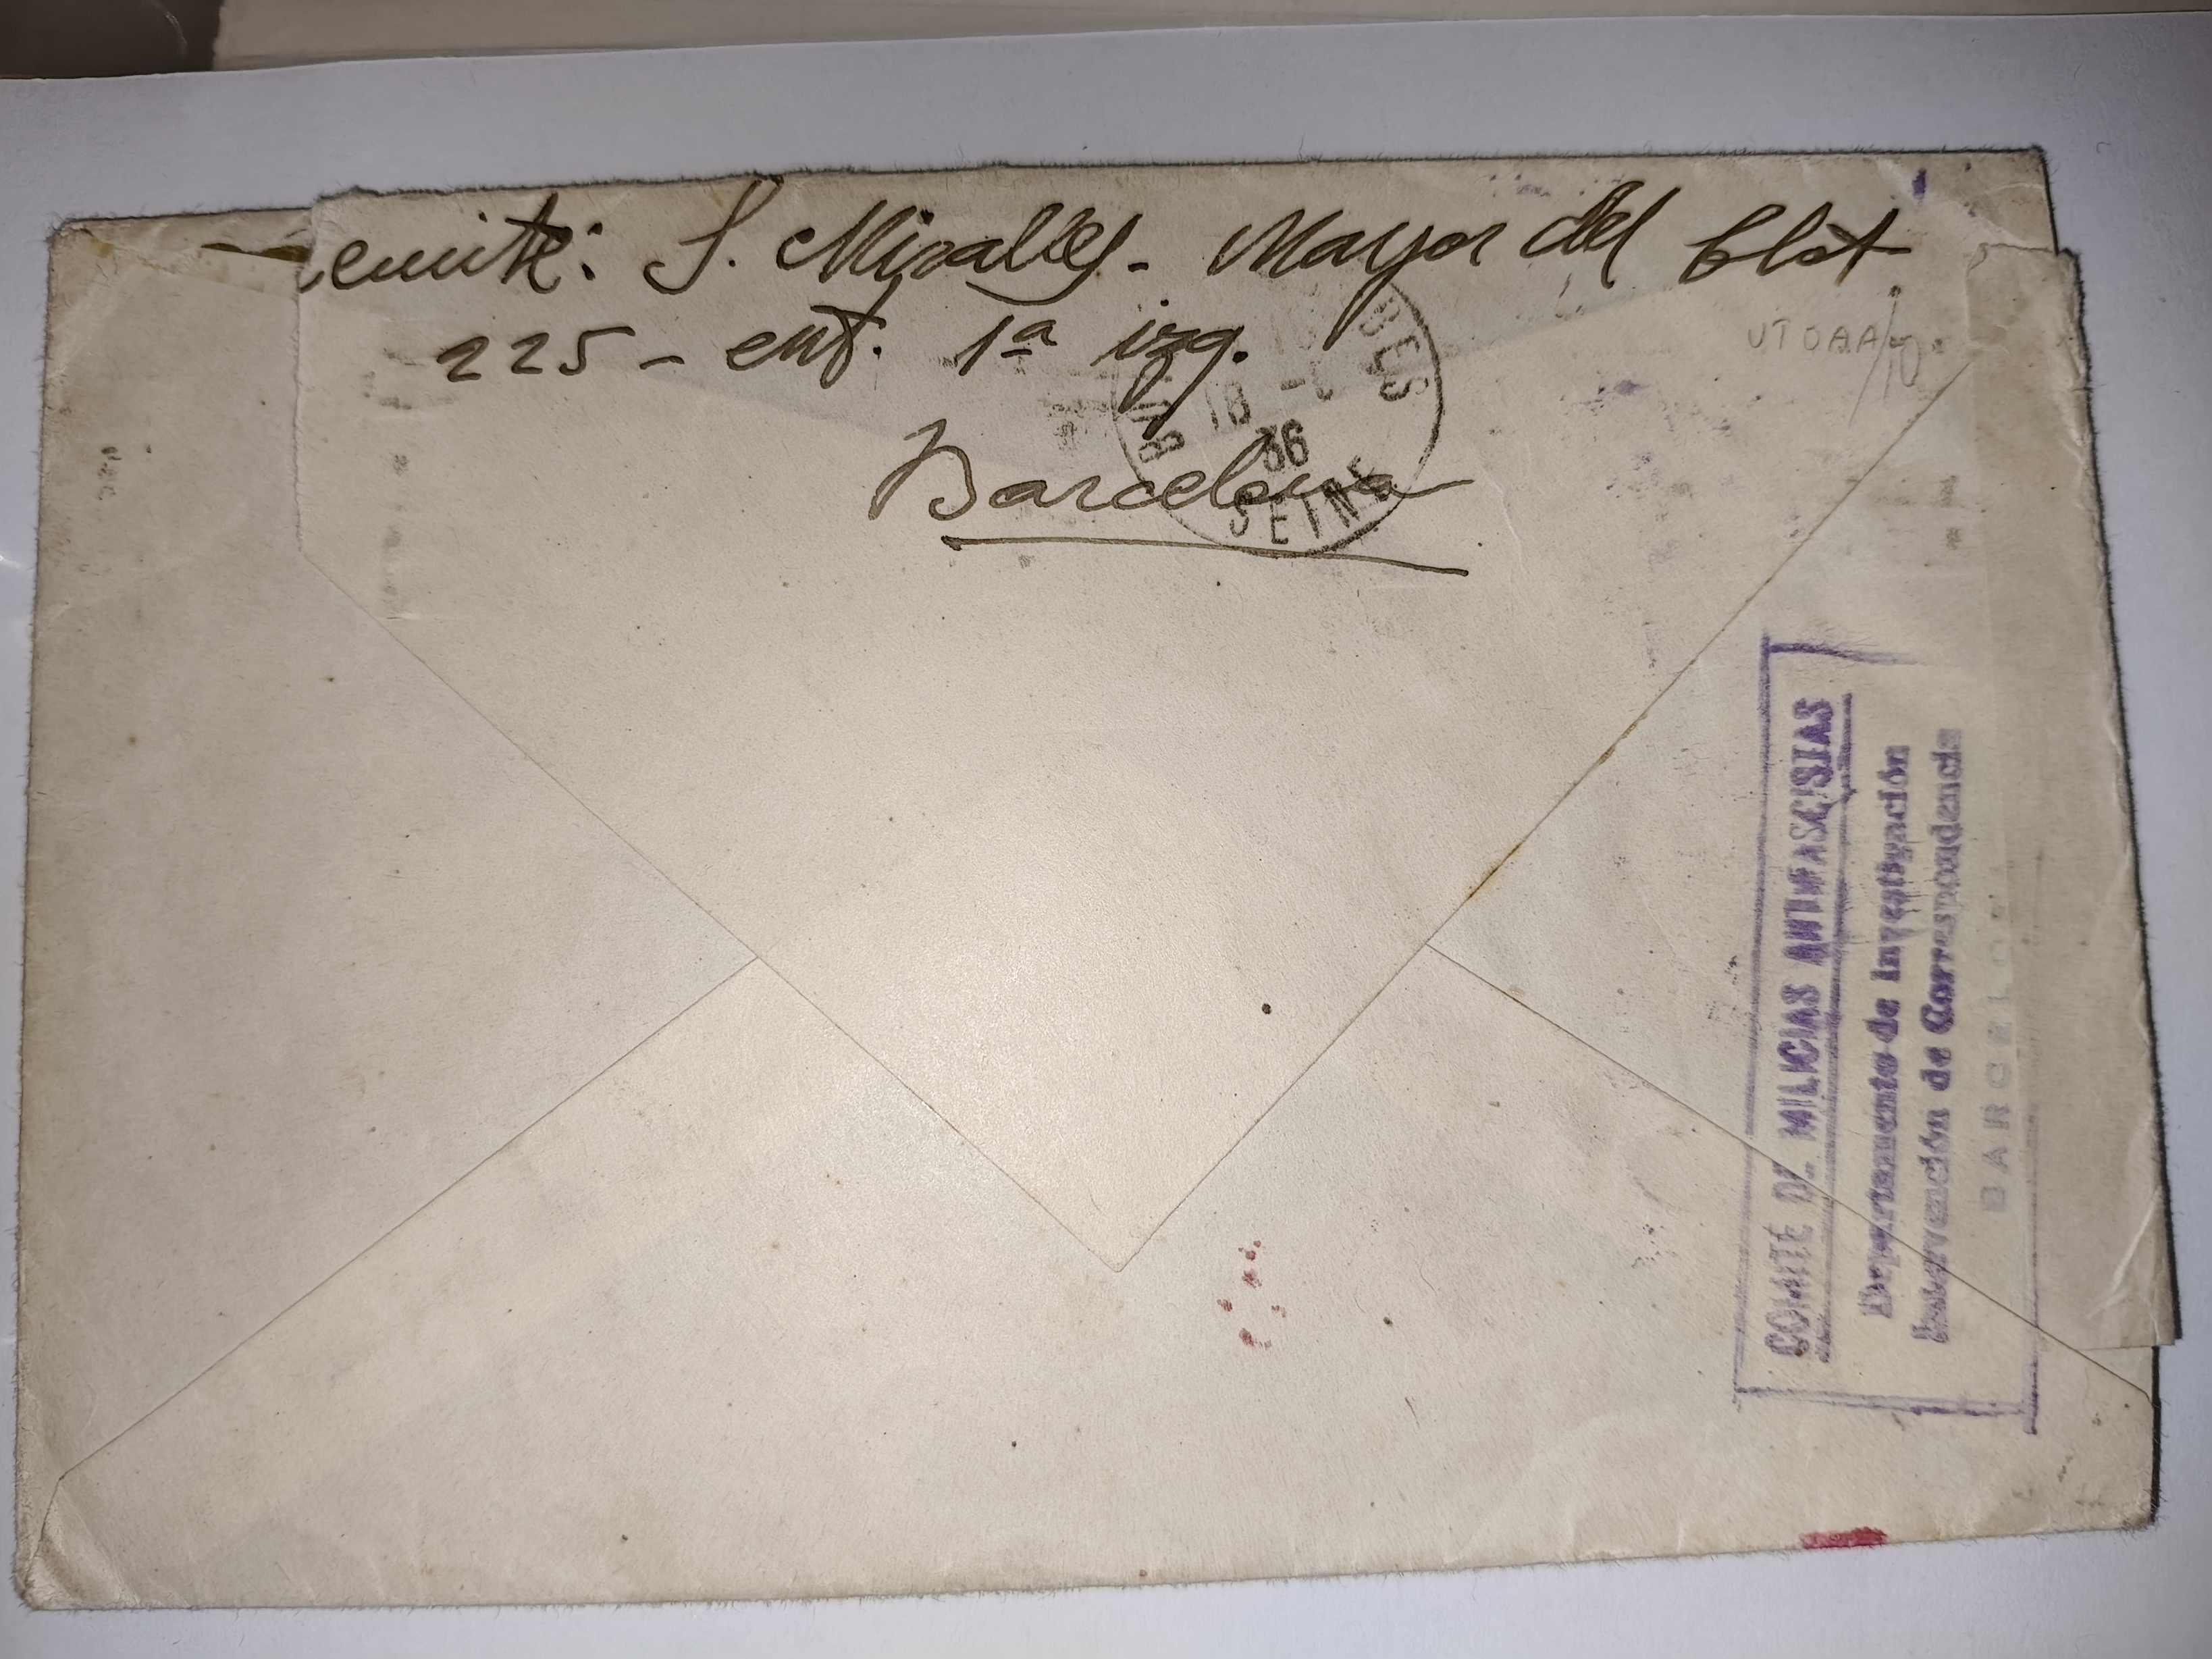 emite: S. Miralles - Mayor del Clot
225 - ent. 1ª izq.
Barcelona
BES
18 -
36
SEINE
COMITÉ DE MILICIAS ANTIFASCISTAS
Departamento de Investigación
Intervención de Correspondencia
BARCELONA